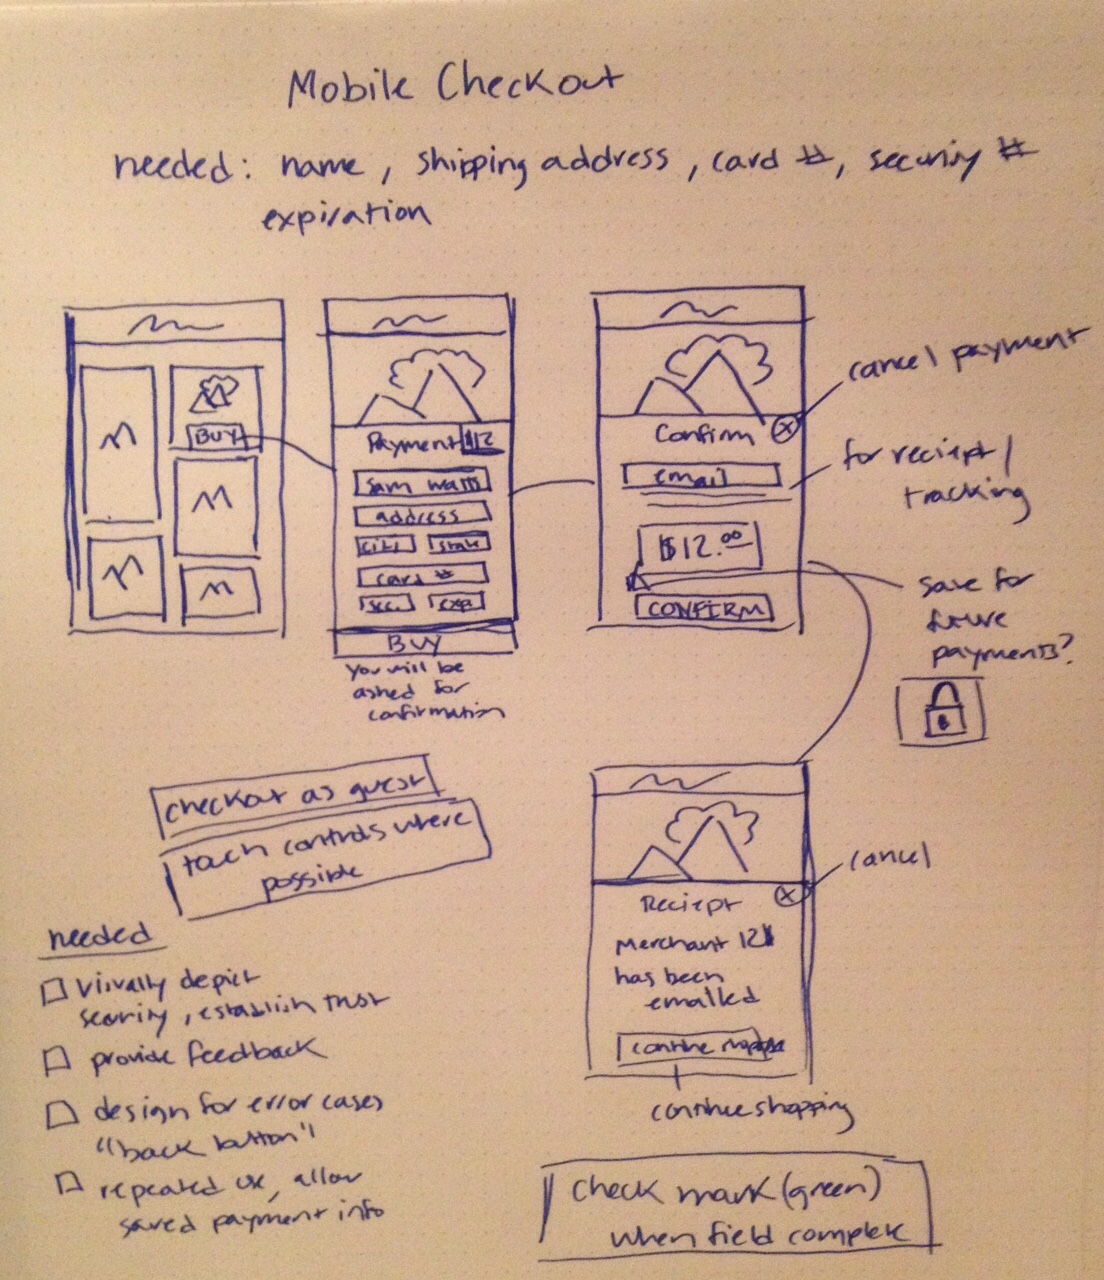 Mobile Checkout
needed: name, shipping address, card #, security #
expiration
BUY
Payment $12
Sam Watts
address
city state
card #
sec. exp
BUY
You will be
asked for
confirmation
Confirm
email
$12.00
CONFIRM
cancel payment
for reciept /
tracking
save for
future
payments?
checkout as guest
touch controls where
possible
needed
visually depict
security, establish trust
provide feedback
design for error cases
"back button"
repeated use, allow
saved payment info
Reciept
Merchant
has been
emailed
continue shopping
cancel
continue shopping
check mark (green)
when field complete